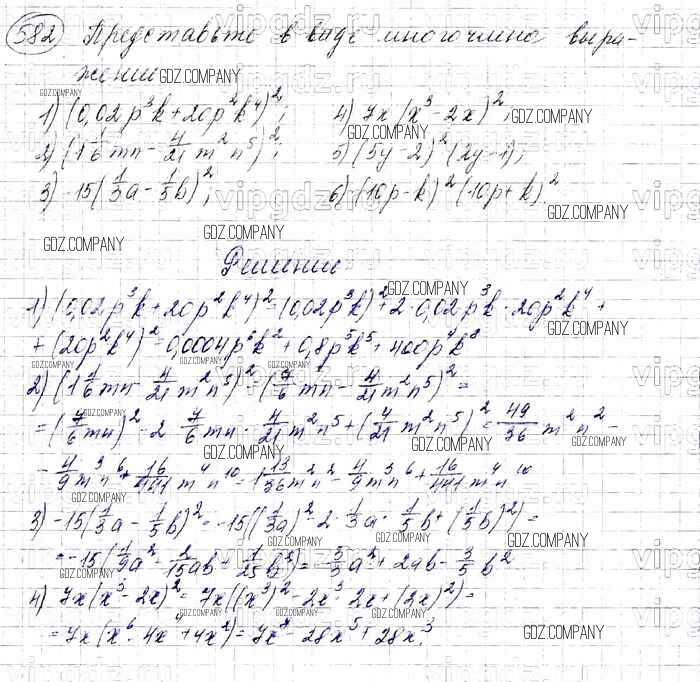 582 Представьте в виде многочлена выра-
жение
1) (0,02p³k + 20p²k⁴)²; 4) 7x(x³ - 2x)²;
2) (1 1/6 mn - 4/21 m²n⁵)²; 5) (5y - 2)²(2y - 1);
3) -15(1/3 a - 1/5 b)²; 6) (10p - k)²(10p + k)².
Решение
1) (0,02p³k + 20p²k⁴)² = (0,02p³k)² + 2·0,02p³k·20p²k⁴ +
+ (20p²k⁴)² = 0,0004p⁶k² + 0,8p⁵k⁵ + 400p⁴k⁸
2) (1 1/6 mn - 4/21 m²n⁵)² = (7/6 mn - 4/21 m²n⁵)² =
= (7/6 mn)² - 2·7/6 mn · 4/21 m²n⁵ + (4/21 m²n⁵)² = 49/36 m²n² -
- 4/9 m³n⁶ + 16/441 m⁴n¹⁰ = 1 13/36 m²n² - 4/9 m³n⁶ + 16/441 m⁴n¹⁰
3) -15(1/3 a - 1/5 b)² = -15((1/3 a)² - 2·1/3 a · 1/5 b + (1/5 b)²) =
= -15(1/9 a² - 2/15 ab + 1/25 b²) = -5/3 a² + 2ab - 3/5 b²
4) 7x(x³ - 2x)² = 7x((x³)² - 2x³·2x + (2x)²) =
= 7x(x⁶ - 4x⁴ + 4x²) = 7x⁷ - 28x⁵ + 28x³.
GDZ.COMPANY
vipgdz.ru